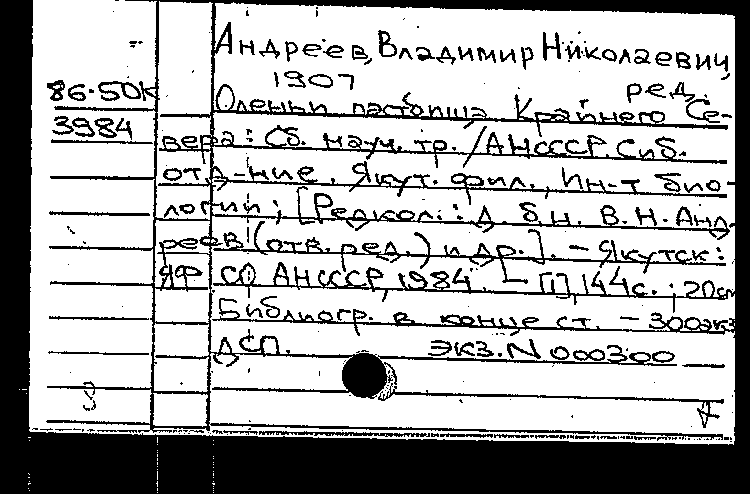 Андреев, Владимир Николаевич,
1907 ред.
86-50К Оленьи пастбища Крайнего Се-
3984 вера: Сб. науч. тр. / АН СССР. Сиб.
отд-ние. Якут. фил., Ин-т био-
логии; [Редкол.: Д. б. н. В. Н. Анд-
реев (отв. ред.) и др.]. - Якутск:
ЯФ СО АН СССР, 1984. - [1], 144 с.; 20см
Библиогр. в конце ст. - 300экз
ДСП. экз. N 000300